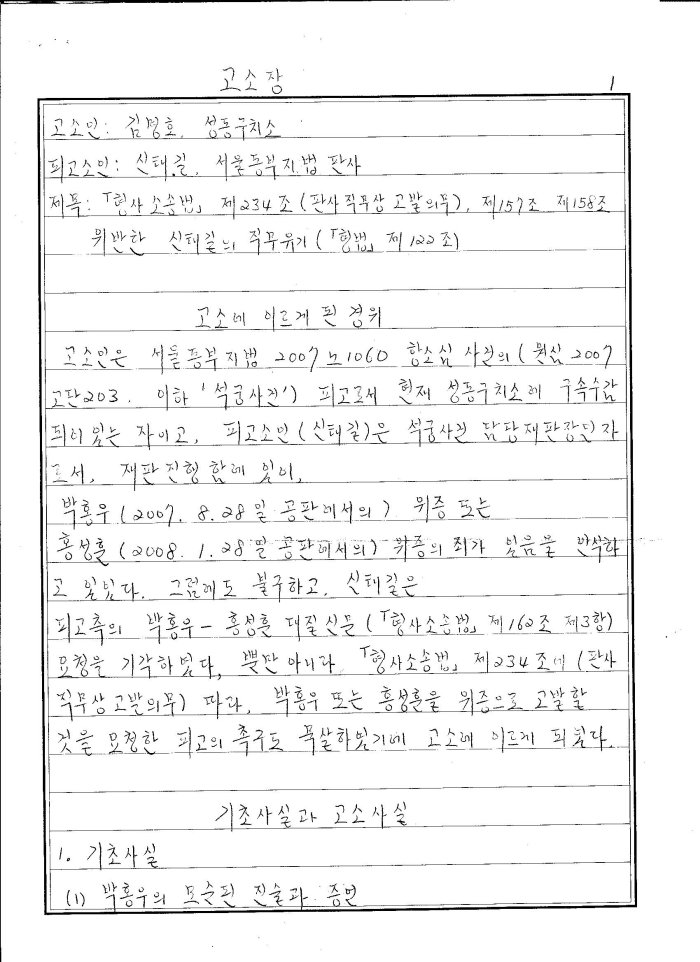 고소장
1
고소인: 김명호, 성동구치소
피고소인: 신태길, 서울동부지법 판사
제목: 「형사소송법」 제234조 (판사직무상 고발의무), 제157조 제158조
위반한 신태길의 직무유기 (「형법」 제122조)
고소에 이르게 된 경위
고소인은 서울동부지법 2007노1060 항소심 사건의 (원심 2007
고단203. 이하 '석궁사건') 피고로서 현재 성동구치소에 구속수감
되어있는 자이고, 피고소인(신태길)은 석궁사건 담당재판장된자
로서, 재판진행함에 있어,
박홍우 (2007. 8. 28일 공판에서의) 위증 또는
홍성훈 (2008. 1. 28일 공판에서의) 위증의 죄가 있음을 인식하
고 있었다. 그럼에도 불구하고, 신태길은
피고측의 박홍우 - 홍성훈 대질신문 (「형사소송법」 제162조 제3항)
요청을 기각하였다, 뿐만 아니라 「형사소송법」 제234조에 (판사
직무상 고발의무) 따라, 박홍우 또는 홍성훈을 위증으로 고발할
것을 요청한 피고의 촉구도 묵살하였기에 고소에 이르게 되었다.
기초사실과 고소사실
1. 기초사실
(1) 박홍우의 모순된 진술과 증언